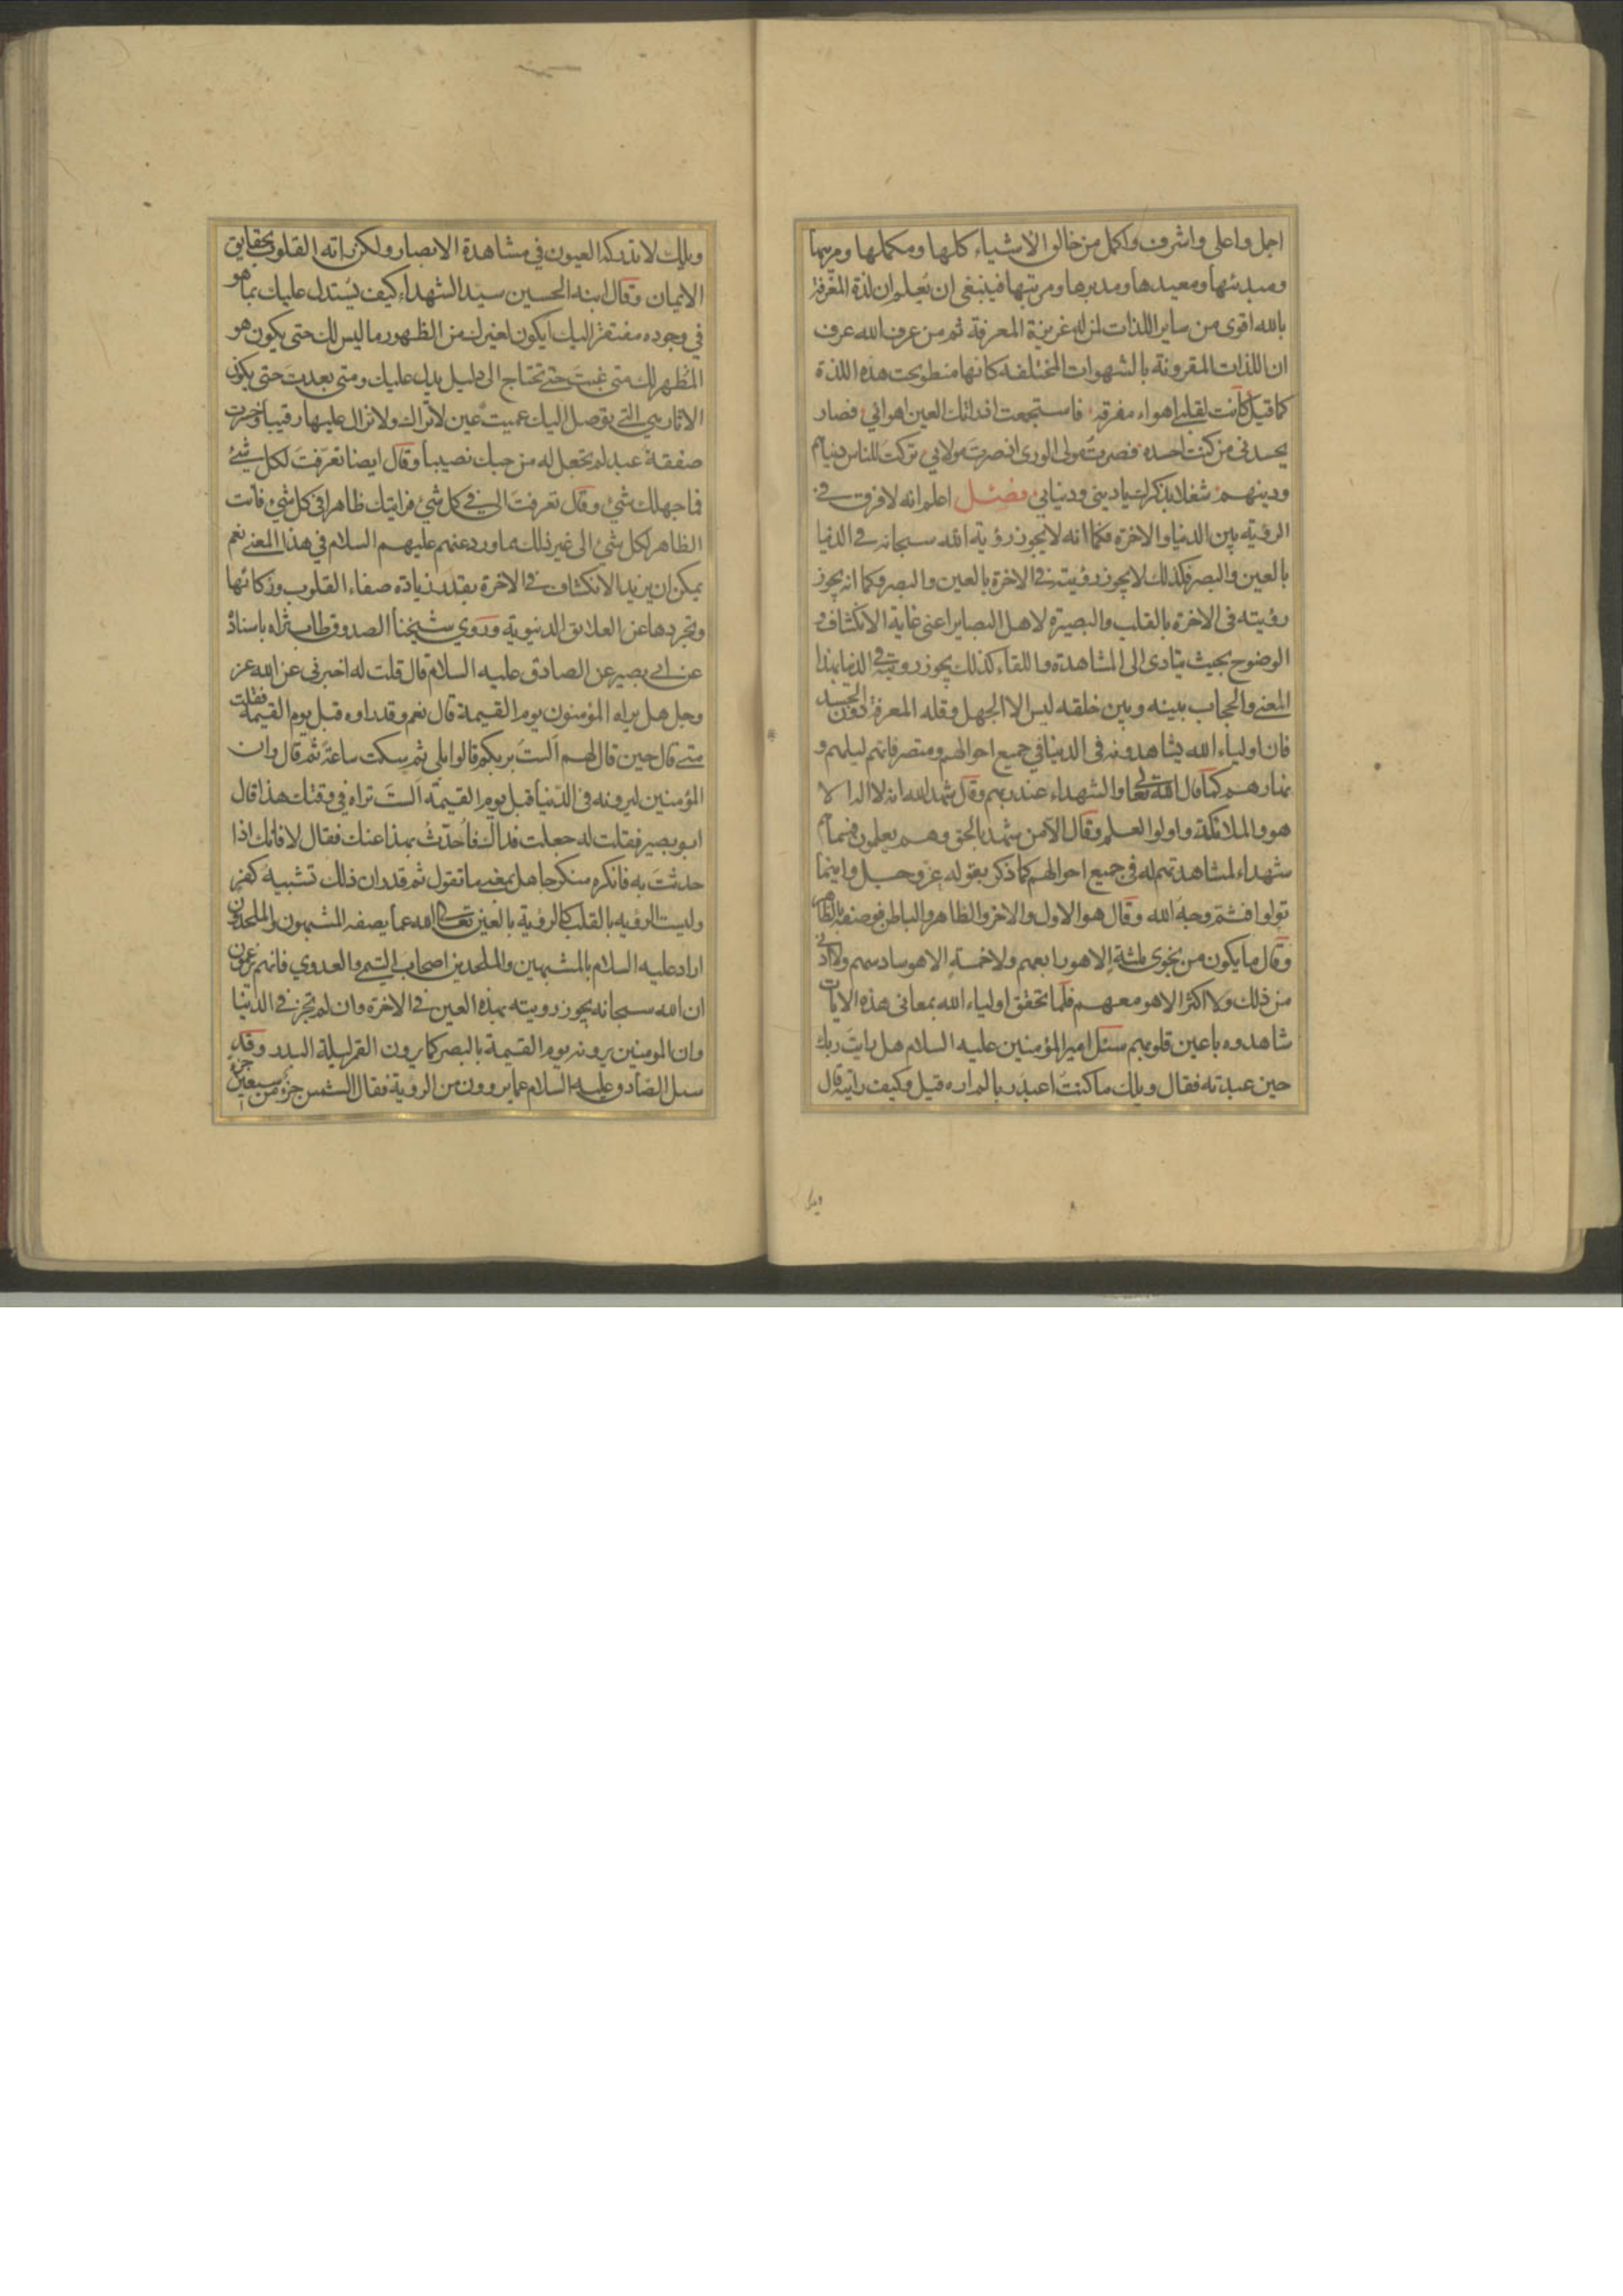 اجل واعلى واشرف واكمل من خالق الاشياء كلها ومكملها ومزينها
ومبدئها ومعيدها ومدبرها ومرتبها فينبغى ان تعلم ان لذة المعرفة
بالله اقوى من ساير اللذات لمن له غريزة المعرفة ثم من عرف الله عرف
ان اللذات المقرونة بالشهوات المختلفه كانها منطو تحت هذه اللذة
كما قيل كانت لقلبى اهواء مفرقة فاستجمعت اذ راتك العين اهوائي فصار
يحسدنى من كنت احسده فصرت مولى الورى اذ صرت مولايي تركت للناس دنياهم
ودينهم شغلا بذكرك يا دينى ودنيايئ فصل اعلم انه لا فرق فى
الرؤية بين الدنيا والاخرة فكما انه لا يجوز رؤية الله سبحانه فى الدنيا
بالعين والبصر فكذلك لا يجوز رؤيته فى الاخرة بالعين والبصر وكما انه يجوز
رؤيته فى الاخرة بالقلب والبصيرة لاهل البصاير اعنى غاية الانكشاف و
الوضوح بحيث يتادى الى المشاهدة واللقاء كذلك يجوز رويته فى الدنيا بهذا
المعنى والحجاب بينه وبين خلقه ليس الا الجهل وقله المعرفة دون الجسد
فان اولياء الله يشاهدونه فى الدنيا في جميع احوالهم ومتصرفاتهم ليلهم و
نهارهم كما قال الله تعالى والشهداء عند ربهم وقال شهد الله انه لا اله الا
هو والملائكة واولوا العلم وقال الا من شهد بالحق وهم يعلمون فسماهم
شهداء لمشاهدتهم له فى جميع احوالهم كما ذكر بقوله عز وجل واينما
تولوا فثم وجه الله وقال هو الاول والاخر والظاهر والباطن فوصفه بالظاهر
وقال ما يكون من نجوى ثلثة الا هو رابعهم ولا خمسة الا هو سادسهم ولا ادنى
من ذلك ولا اكثر الا هو معهم فلما تحقق اولياء الله بمعانى هذه الايات
شاهدوه باعين قلوبهم سئل امير المؤمنين عليه السلام هل رايت ربك
حين عبدته فقال ويلك ما كنت اعبد ربا لم اره قيل وكيف رايته قال
ويلك
ويلك لا تدركه العيون في مشاهدة الابصار ولكن راته القلوب بحقايق
الايمان وقال ابنه الحسين سيد الشهداء كيف يستدل عليك بما هو
في وجوده مفتقر اليك ايكون لغيرك من الظهور ما ليس لك حتى يكون هو
المظهر لك متى غبت حتى تحتاج الى دليل يدل عليك ومتى بعدت حتى يكون
الاثار هي التى توصل اليك عميت عين لا تراك ولا تزال عليها رقيبا وخسرت
صفقة عبد لم تجعل له من حبك نصيبا وقال ايضا تعرفت لكل شئ
فما جهلك شئ وقال تعرفت الي فى كل شئ فرايتك ظاهرا فى كل شئ فانت
الظاهر لكل شئ الى غير ذلك مما ورد عنهم عليهم السلام في هذا المعنى نعم
يمكن ان يزيد الانكشاف فى الاخرة بقدر زيادة صفاء القلوب وزكائها
وتجردها عن العلائق الدنيوية وروي شيخنا الصدوق طاب ثراه باسناده
عن ابى بصير عن الصادق عليه السلام قال قلت له اخبرنى عن الله عز
وجل هل يراه المؤمنون يوم القيمة قال نعم وقد راوه قبل يوم القيمة فقلت
متى قال حين قال لهم الست بربكم قالوا بلى ثم سكت ساعة ثم قال وان
المؤمنين ليرونه فى الدنيا قبل يوم القيمة الست تراه في وقتك هذا قال
ابو بصير فقلت له جعلت فداك فاحدث بهذا عنك فقال لا فانك اذا
حدثت به فانكره منكر جاهل بمعنى ما تقول ثم قدر ان ذلك تشبيه كفر
وليست الرؤيه بالقلب كالرؤية بالعين تعالى الله عما يصفه المشبهون والملحدون
اراد عليه السلام بالمشبهين والملحدين اصحاب والعدوي فانهم يزعمون
ان الله سبحانه يجوز رويته بهذه العين فى الاخرة وان لم تجز فى الدنيا
وان المومنين يرونه يوم القيمة بالبصر كما يرون القمر ليلة البدر وقد
سئل الصادق عليه السلام عما يروون من الروية فقال الشمس جزء من سبعين جزء